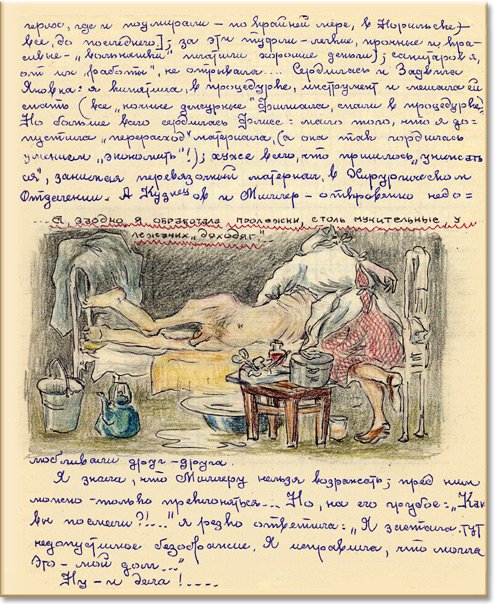 герлос, где и поумирали – по крайней мере, в Норильске
все, до последнего]; за эти туфли – легкие, прочные и кра-
сивые – „вольняшки" платили хорошие деньги]; санитаров я,
от их „работы", не отрывала.... Сердилась и Задвига
Яновна: я кипятила, в процедурке, инструмент и мешала ей
спать (все „ночные дежурные" Фишмана, спали в процедурке)
Но больше всего сердилась Фомес: мало того, что я до-
пустила „перерасход" материала, (а она так гордилась
умением „экономить"!); хуже всего, что пришлось „унижать
ся", занимая перевязочный материал, в Хирургическом
Отделении. А Кузнецов и Миллер – откровенно недо=
... А, заодно, я обработала пролежни, столь мучительные у
лежачих „доходяг."
любливали друг-друга.
Я знала, что Миллеру нельзя возражать; пред ним
можно – только преклоняться... Но, на его грубое: „Как
вы посмели?!..." я резко ответила: „Я застала тут
недопустимое безобразие. Я исправила, что могла
Это – мой долг..."
Ну – и дела!....